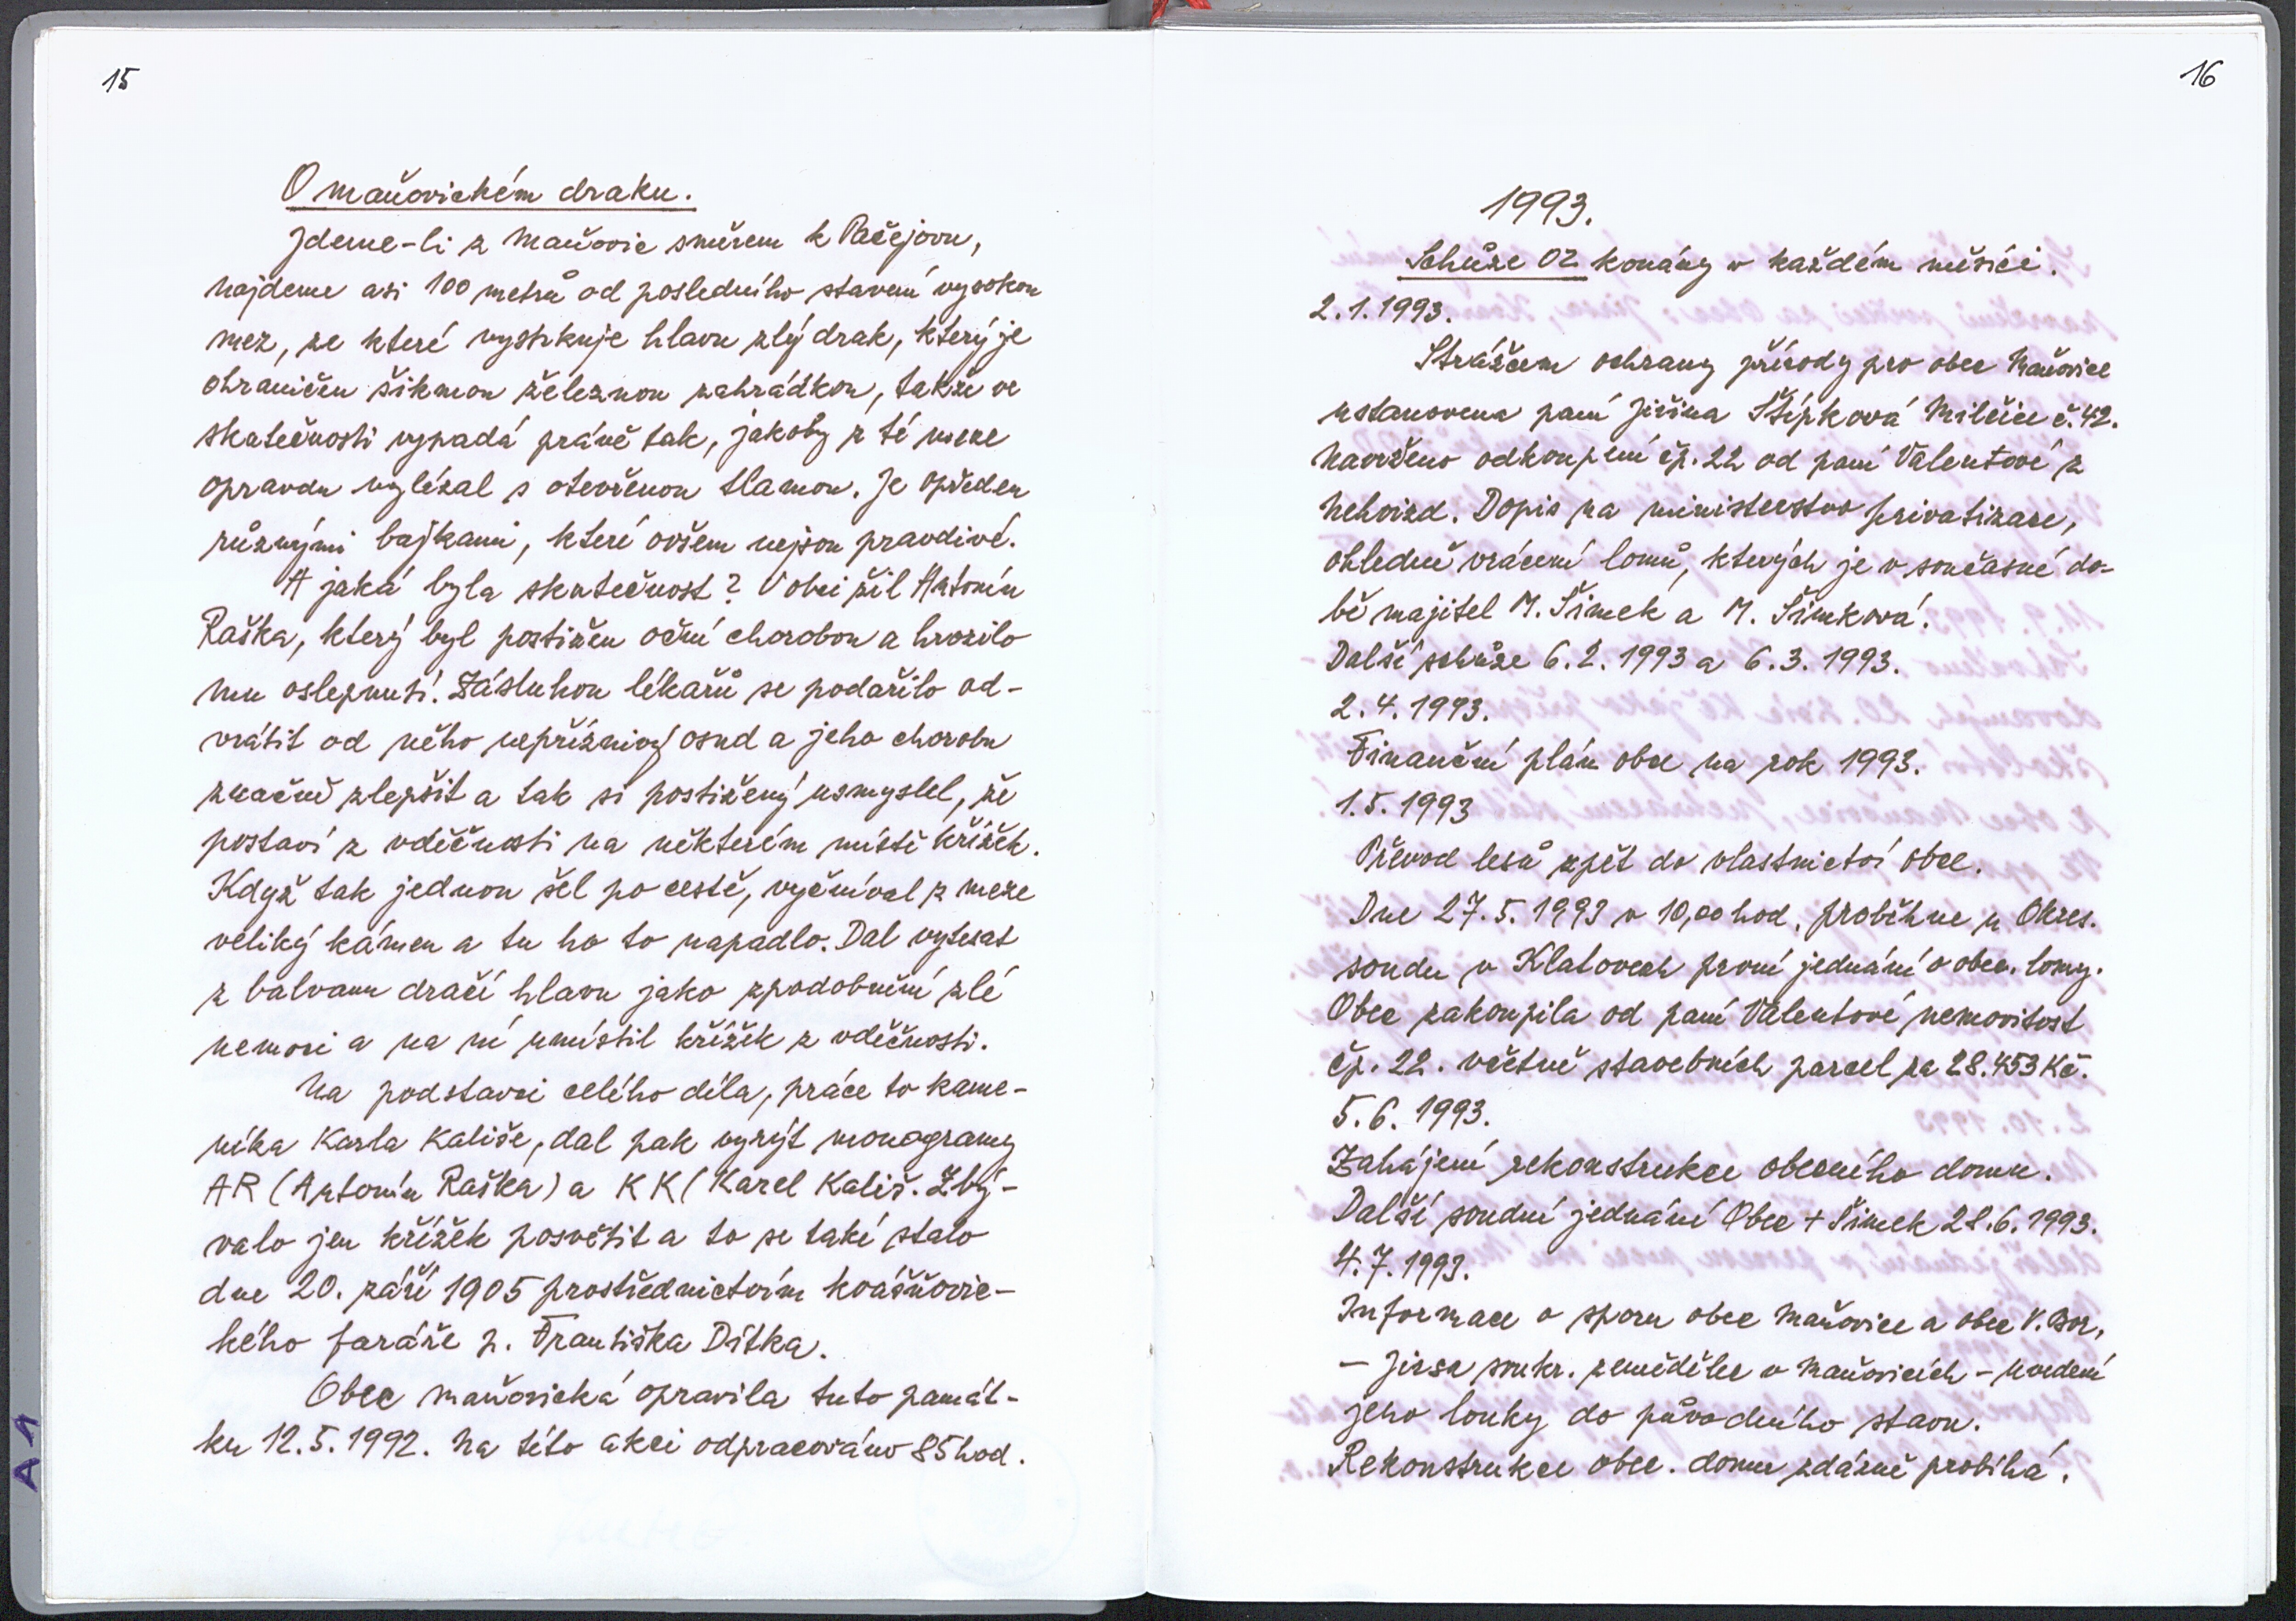 15
O maňovickém draku.
Jdeme-li z Maňovic směrem k Pačejovu,
najdeme asi 100 metrů od posledního stavení vysokou
mez, ze které vystrkuje hlavu zlý drak, který je
ohraničen šikmou železnou zahrádkou, takže ve
skutečnosti vypadá právě tak, jakoby z té meze
opravdu vylézal s otevřenou tlamou. Je opředen
různými bajkami, které ovšem nejsou pravdivé.
A jaká byla skutečnost? V obci žil Antonín
Raška, který byl postižen oční chorobou a hrozilo
mu oslepnutí. Zásluhou lékařů se podařilo od-
vrátit od něho nepříznivý osud a jeho chorobu
značně zlepšit a tak si postižený usmyslel, že
postaví z vděčnosti na některém místě křížek.
Když tak jednou šel po cestě, vyčníval z meze
veliký kámen a tu ho to napadlo. Dal vytesat
z balvanu dračí hlavu jako zpodobnění zlé
nemoci a na ní umístil křížek z vděčnosti.
Na podstavci celého díla, práce to kame-
níka Karla Kališe, dal pak vyrýt monogramy
AR (Antonín Raška) a KK (Karel Kališ. Zbý-
valo jen křížek posvětit a to se také stalo
dne 20. září 1905 prostřednictvím kvášňovic-
kého faráře p. Františka Dítka.
Obec maňovická opravila tuto památ-
ku 12.5.1992. Na této akci odpracováno 85 hod.
A1
16
1993.
Schůze OZ konány v každém měsíci.
2.1.1993.
Strážcem ochrany přírody pro obec Maňovice
ustanovena paní Jiřina Štípková Milčice č.42.
Navrženo odkoupení čp.22 od paní Valentové z
Nehvizd. Dopis na ministerstvo privatizace,
ohledně vrácení lomů, kterých je v současné do-
bě majitel M. Šimek a M. Šimková.
Další schůze 6.2.1993 a 6.3.1993.
2.4.1993.
Finanční plán obce na rok 1993.
1.5.1993
Převod lesů zpět do vlastnictví obce.
Dne 27.5.1993 v 10,00 hod. proběhne u Okres.
soudu v Klatovech první jednání o obec. lomy.
Obec zakoupila od paní Valentové nemovitost
čp. 22. včetně stavebních parcel za 28.453 Kč.
5.6.1993.
Zahájení rekonstrukce obecního domu.
Další soudní jednání Obec + Šimek 28.6.1993.
4.7.1993.
Informace o sporu obce Maňovice a obce V. Bor,
– Jirsa soukr. zemědělec v Maňovicích – uvedení
jeho louky do původního stavu.
Rekonstrukce obec. domu zdárně probíhá.